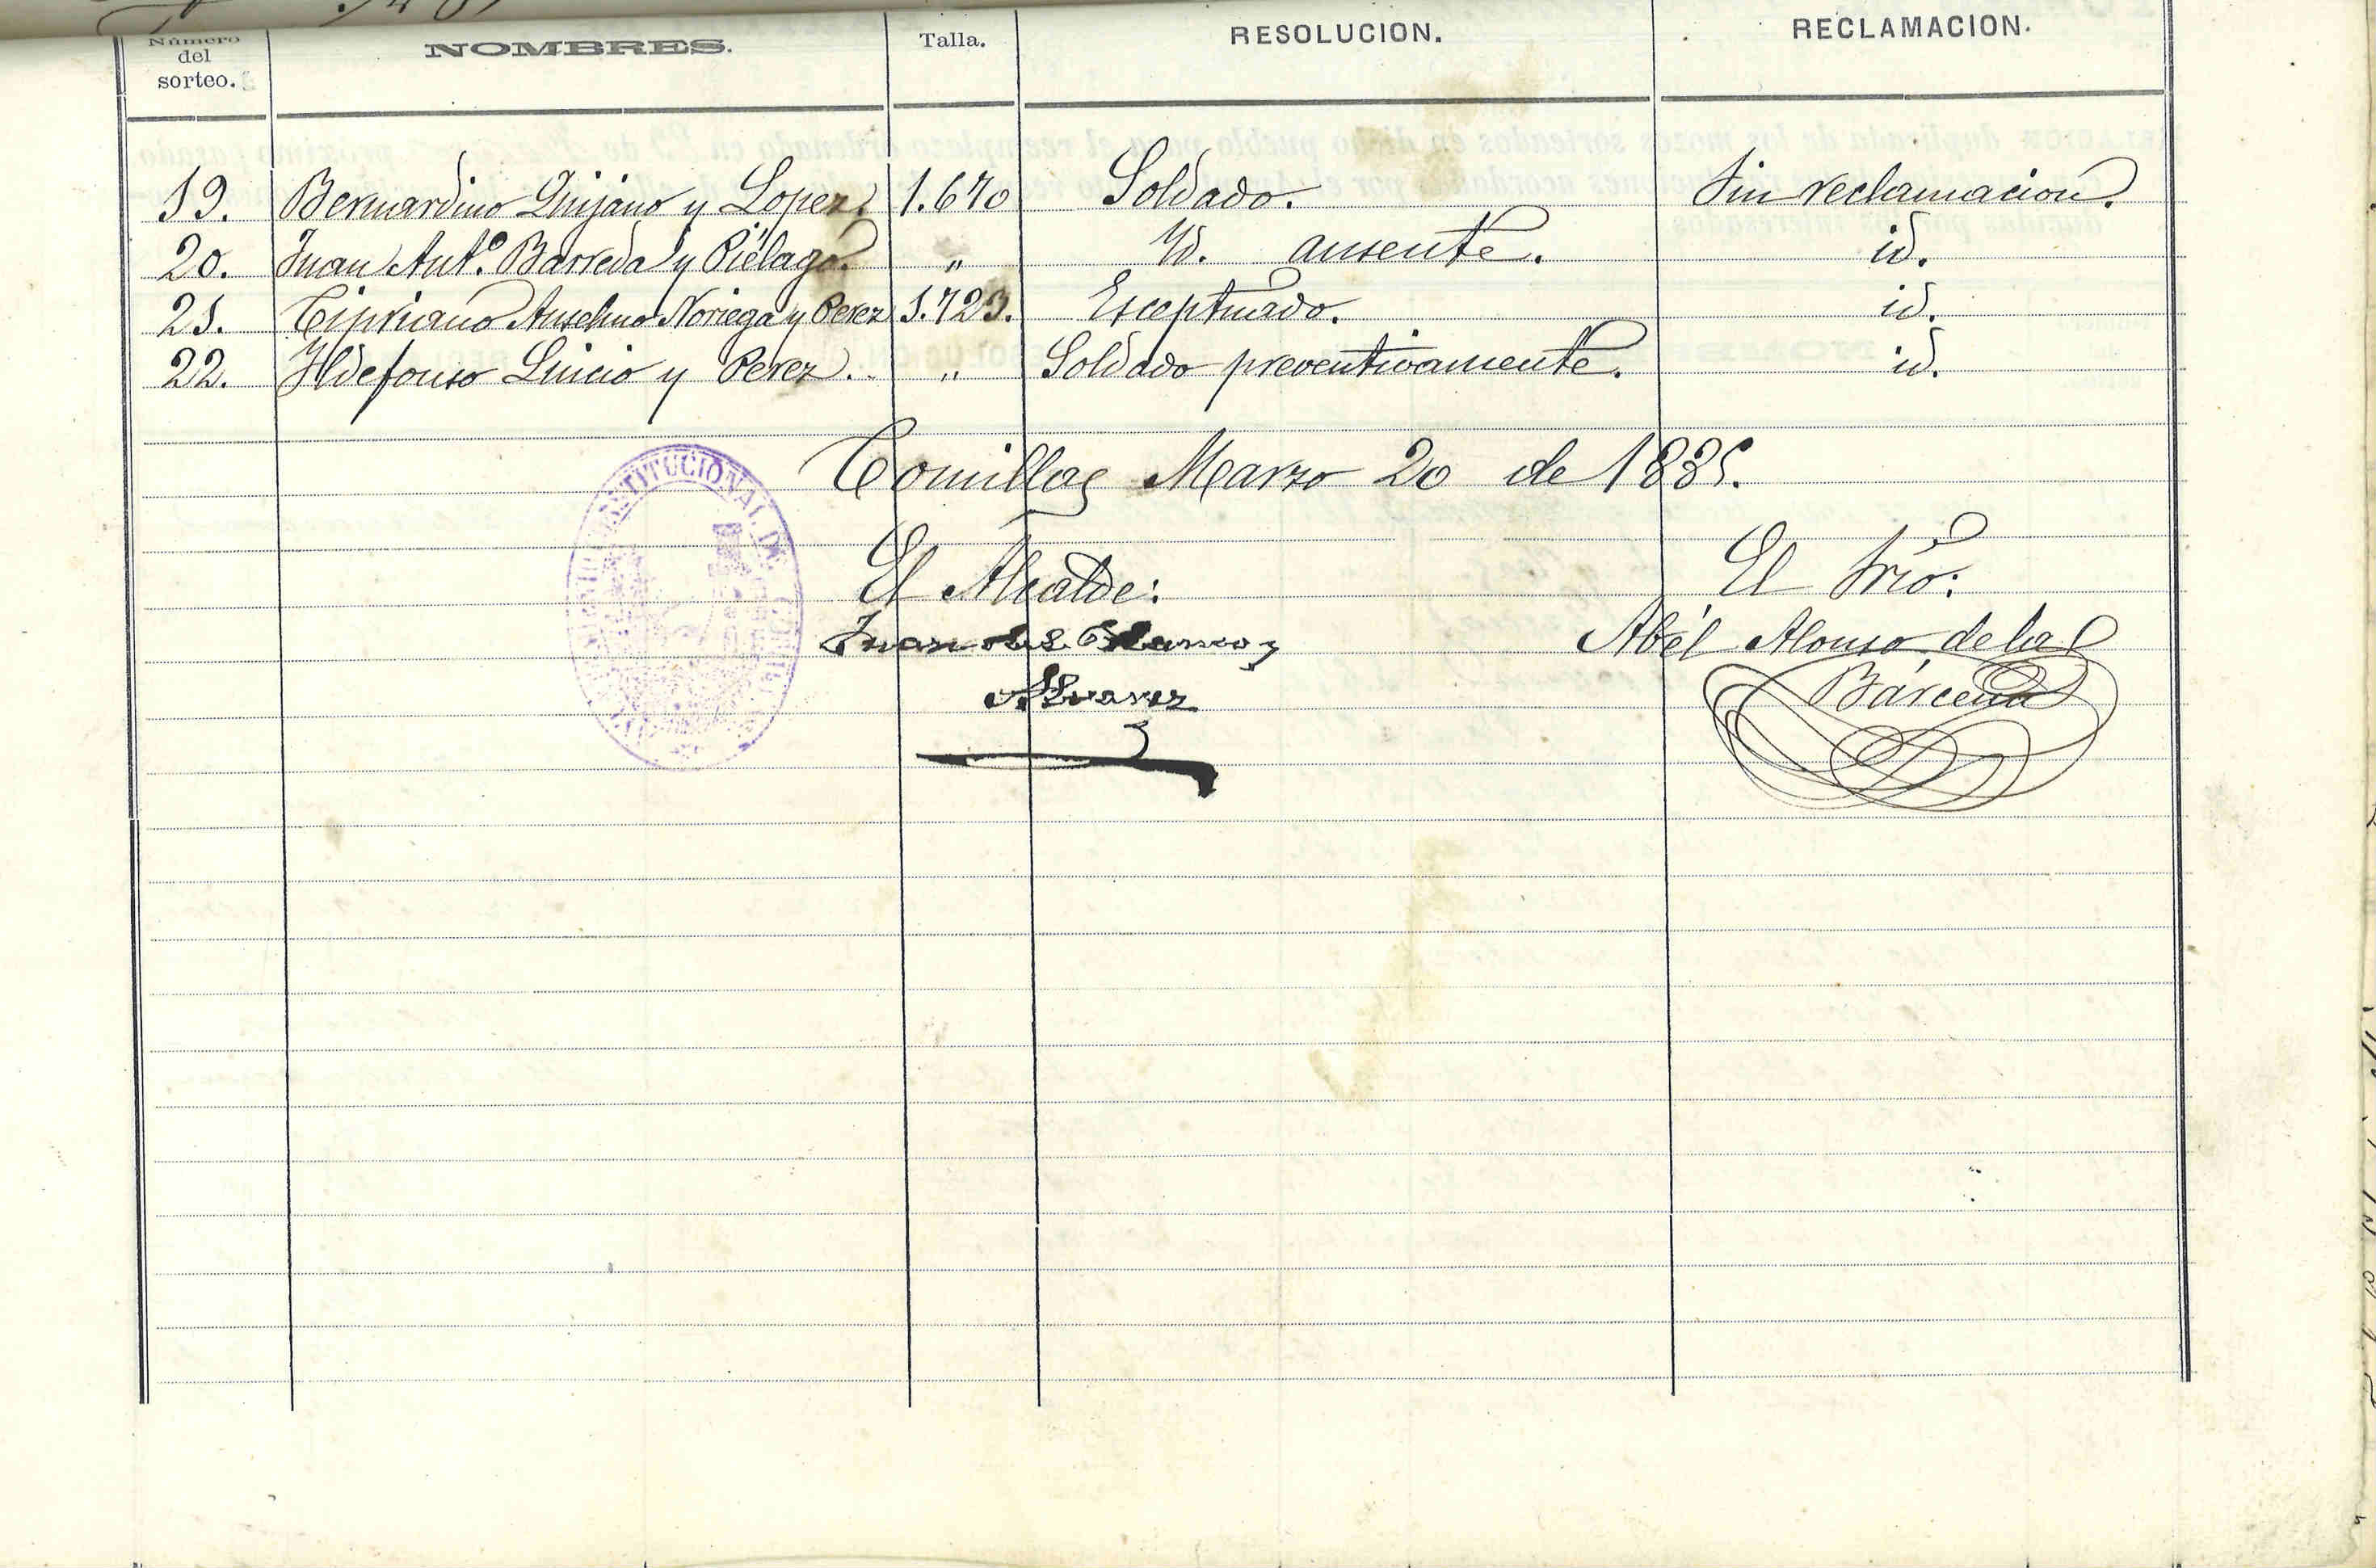 Número del sorteo. NOMBRES. Talla. RESOLUCION. RECLAMACION.
19. Bernardino Quijano y Lopez. 1.670 Soldado. Sin reclamacion.
20. Juan Ant.º Barreda y Piélago. " Yd. ausente. id.
21. Cipriano Anselmo Noriega y Perez 1.723. Esceptuado. id.
22. Yldefonso Linicio y Perez. " Soldado preventivamente. id.
Comillas Marzo 20 de 1885.
El Alcalde: El Srio:
Juan de la Blanco y Abél Alonso de la
Alvarez Bárcena
CONSTITUCIONAL DE